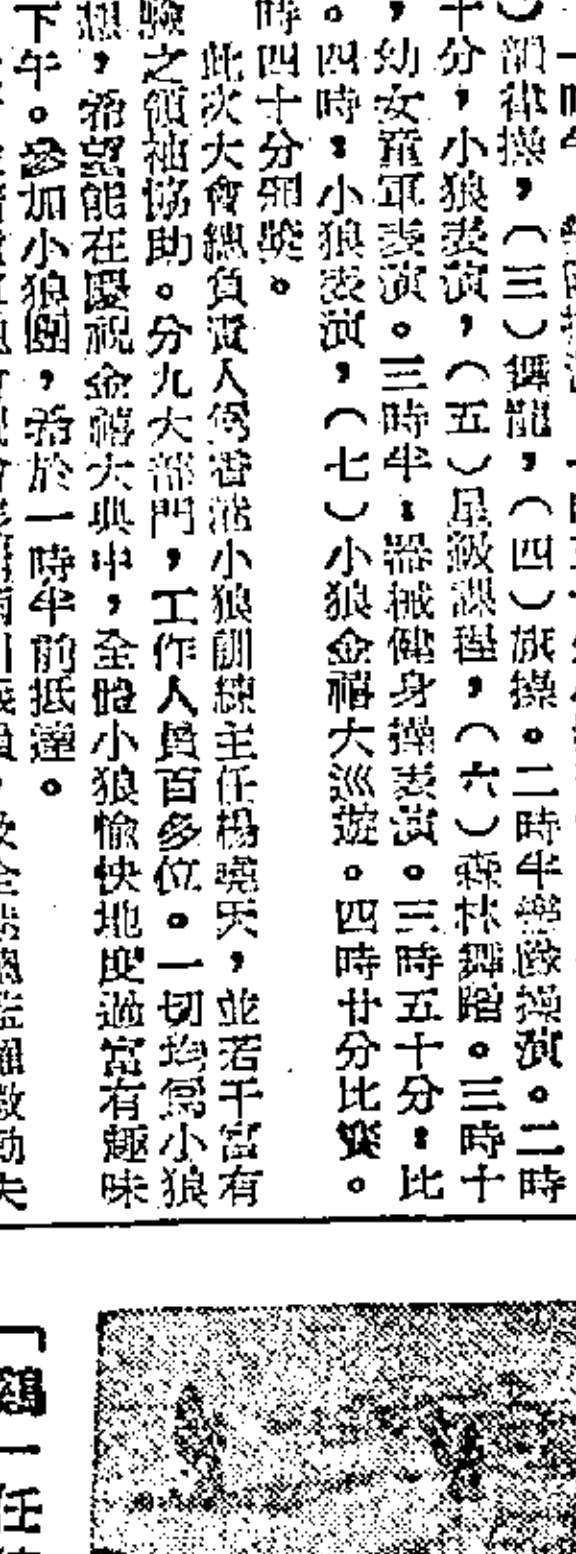 ）韻律操，（三）舞龍，（四）旗操。二時半樂隊操演。二時
十分，小狼表演，（五）星級課程，（六）森林舞蹈。三時十
，幼女童軍表演。三時半：器械健身操表演。三時五十分：比
。四時：小狼表演，（七）小狼金禧大巡遊。四時廿分比賽。
時四十分頒獎。
此次大會總負責人為香港小狼訓練主任楊曉天，並若干富有
驗之領袖協助。分九大部門，工作人員百多位。一切均為小狼
想，希望能在慶祝金禧大典中，全體小狼愉快地度過富有趣味
下午。參加小狼團，希於一時半前抵達。
「鷄一任